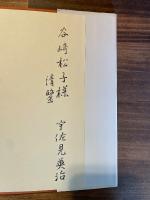 谷崎松子様
清鑒
宇佐見英治